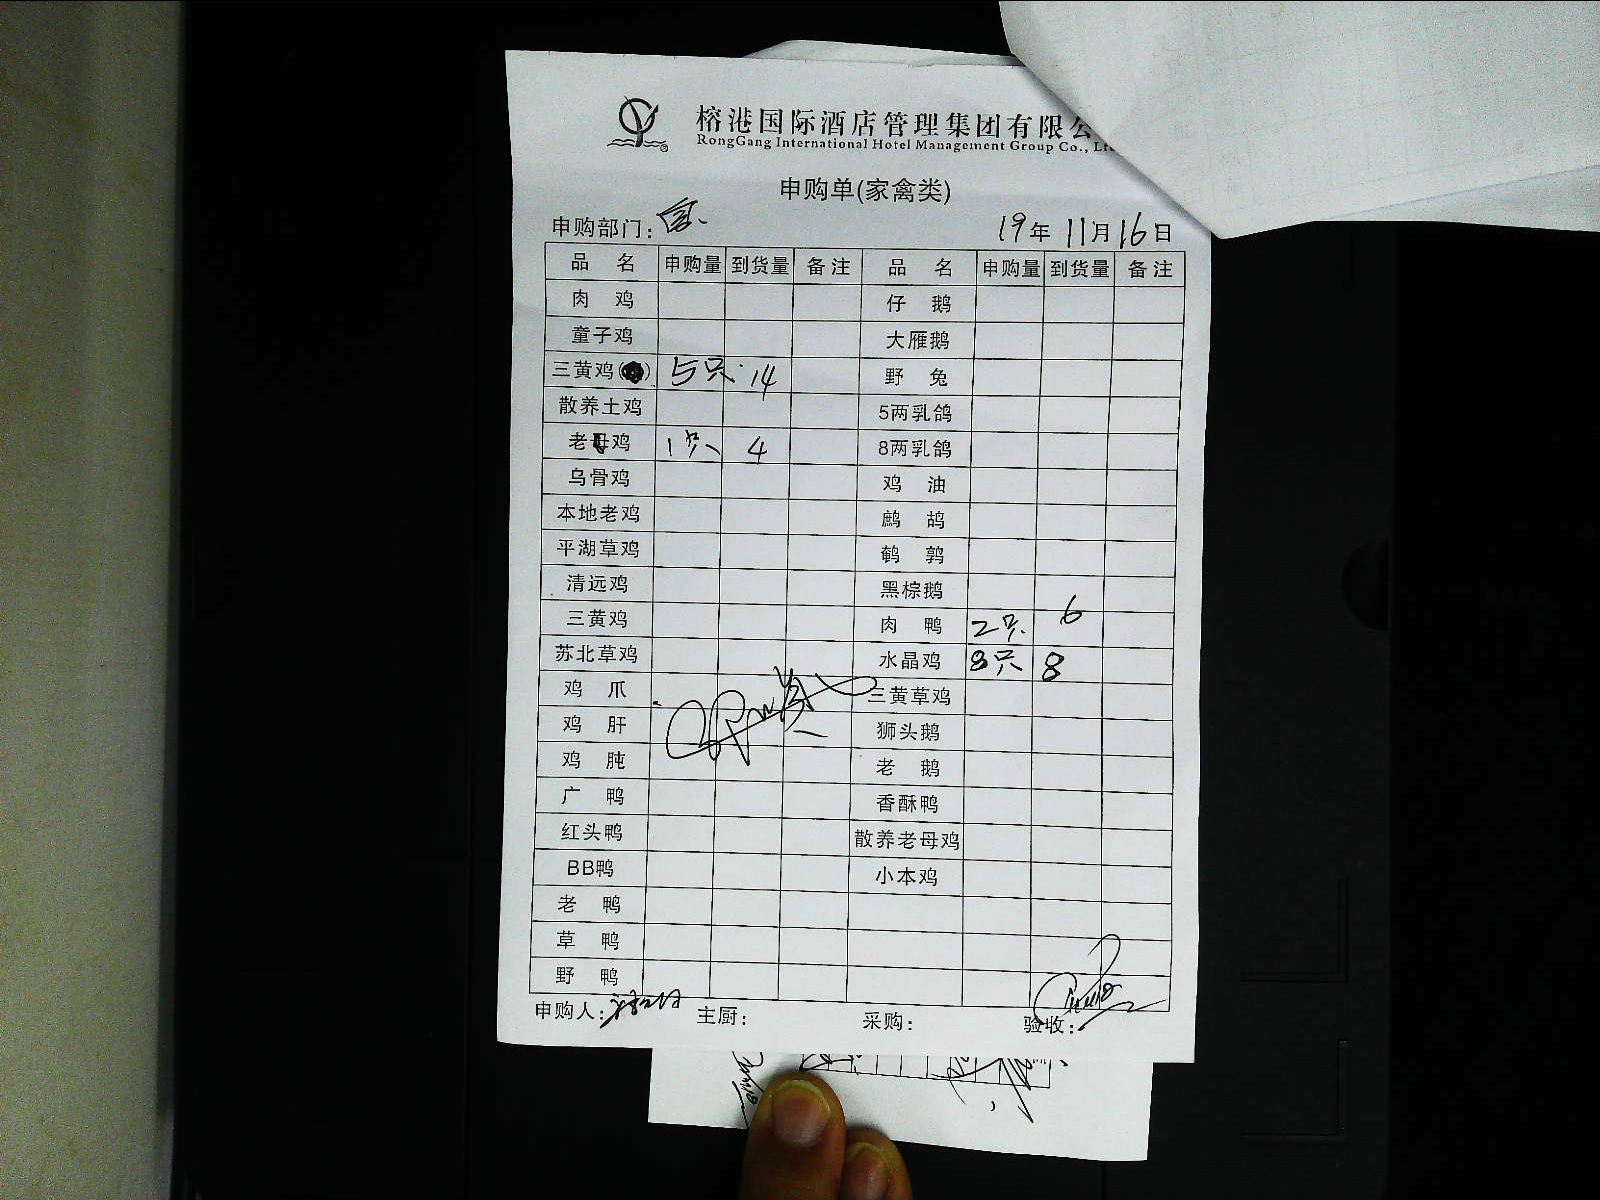 榕港国际酒店管理集团有限公
RongGang International Hotel Management Group Co., Lt
申购单(家禽类)
申购部门： 19年 11月 16日
品 名 申购量 到货量 备注 品 名 申购量 到货量 备注
肉 鸡 仔 鹅
童子鸡 大雁鹅
三黄鸡( ) 5只 14 野 兔
散养土鸡 5两乳鸽
老母鸡 1只 4 8两乳鸽
乌骨鸡 鸡 油
本地老鸡 鹧 鸪
平湖草鸡 鹌 鹑
清远鸡 黑棕鹅
三黄鸡 肉 鸭 2只 6
苏北草鸡 水晶鸡 8只 8
鸡 爪 三黄草鸡
鸡 肝 狮头鹅
鸡 肫 老 鹅
广 鸭 香酥鸭
红头鸭 散养老母鸡
BB鸭 小本鸡
老 鸭
草 鸭
野 鸭
申购人： 主厨： 采购： 验收：